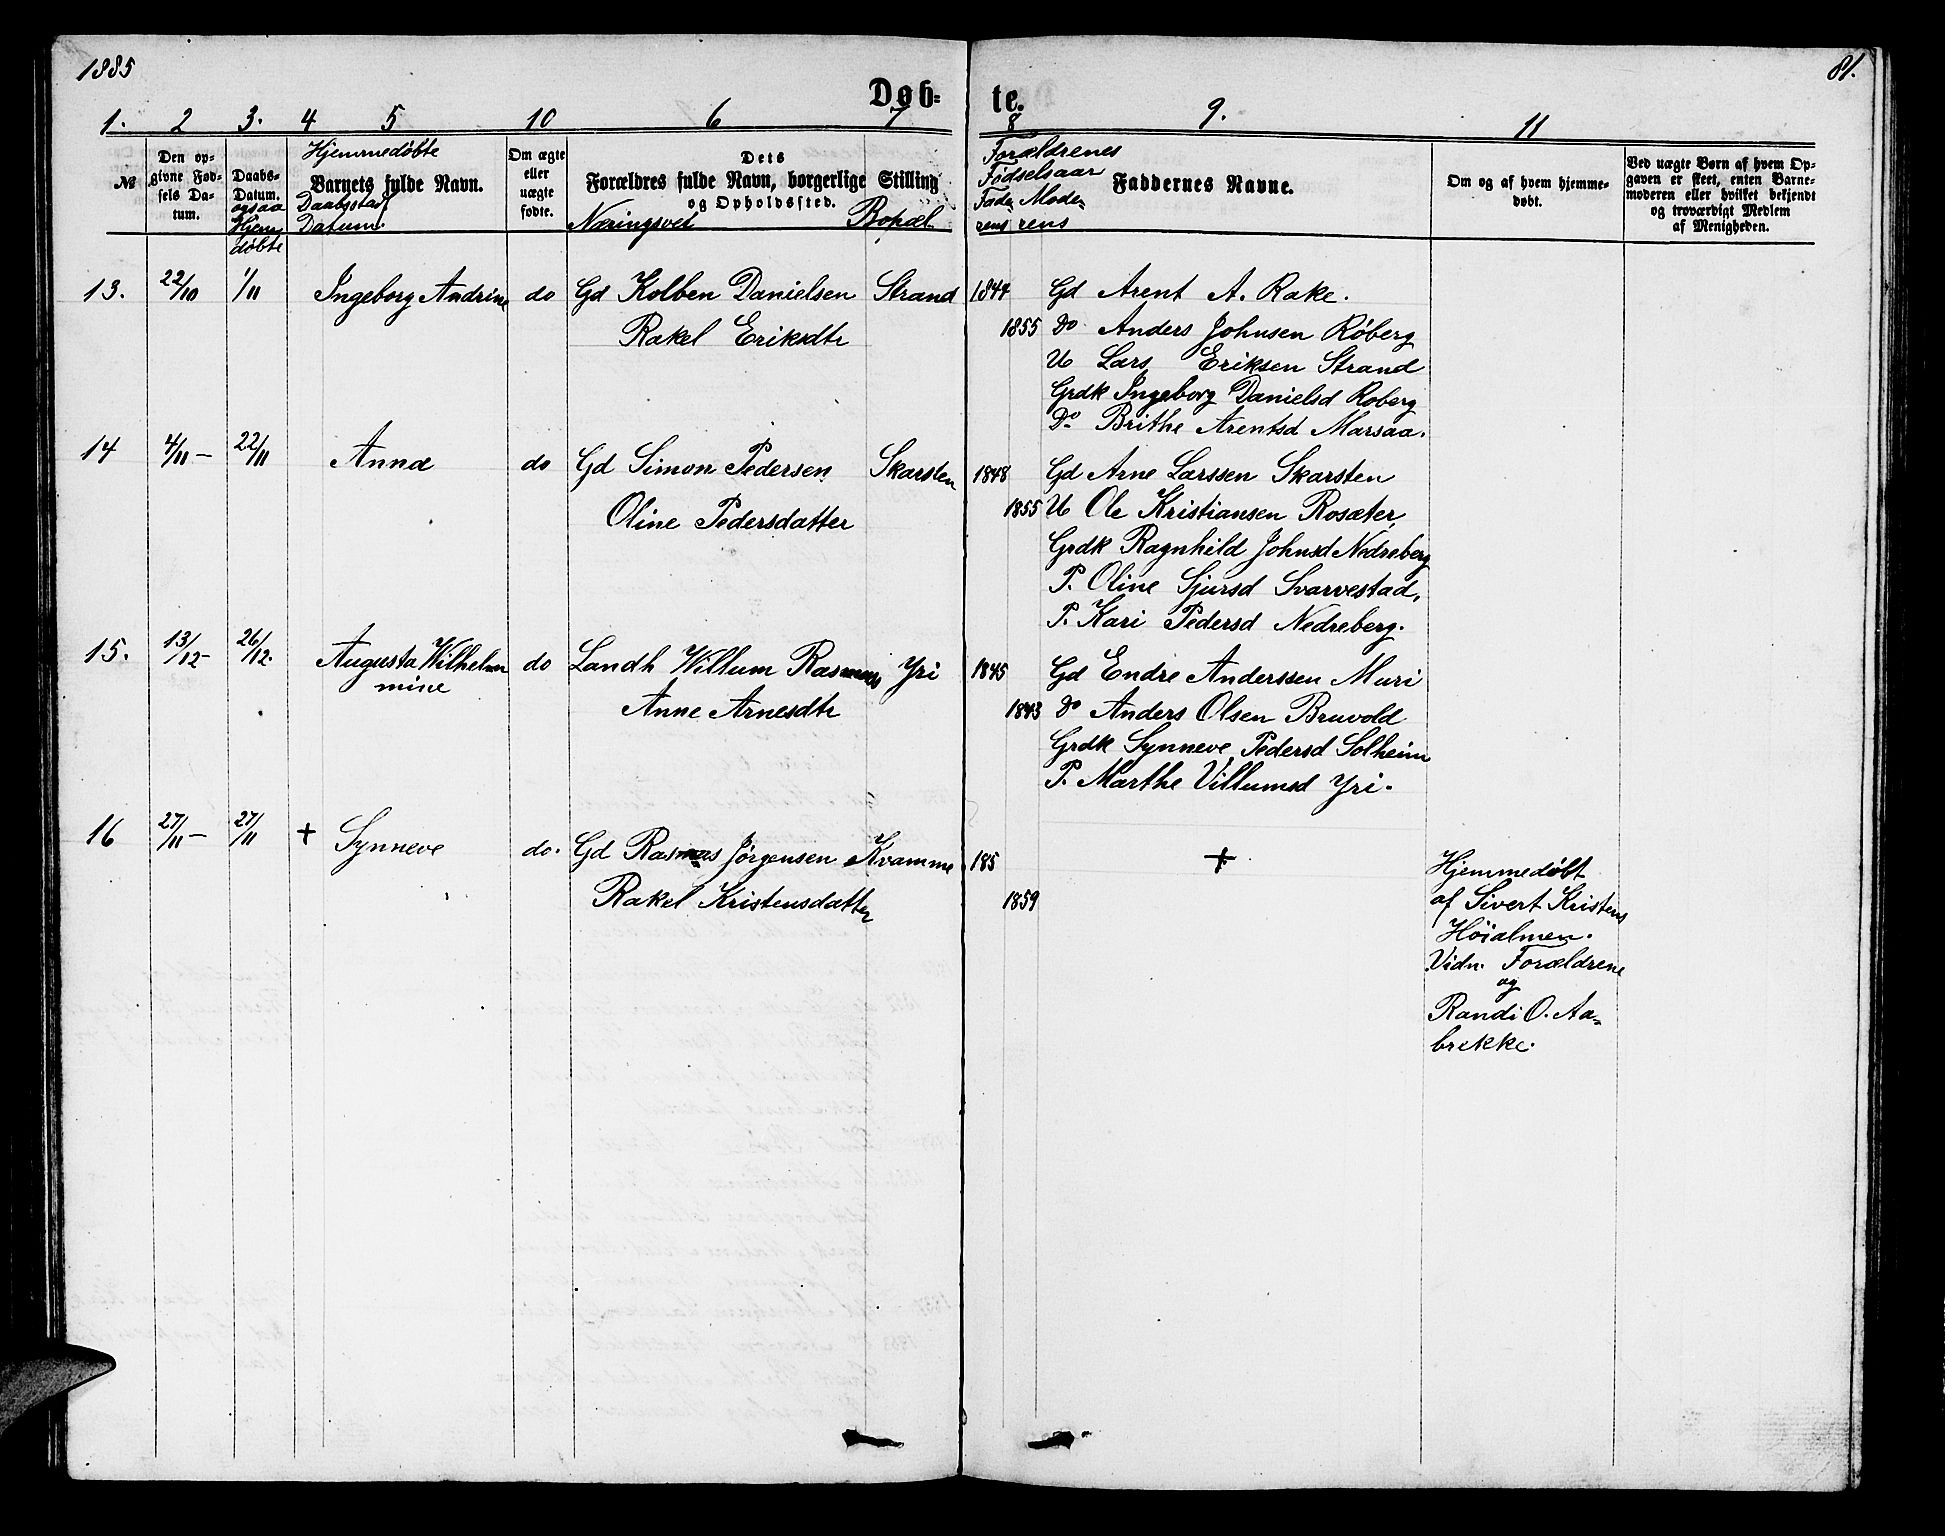 1885
81.
Døb-
te.
1. 2 3. 4 5 10 6 7 8 9. 11
№
Den op-
givne Fød-
sels Da-
tum.
Daabs-
Datum.
ogsaa
Hjem
døbte
Hjemmedøbte
Barnets fulde Navn.
Daabsstad
Datum.
Om ægte
eller
uægte
fødte.
Dets
Forældres fulde Navn, borgerlige Stilling
og Opholdssted.
Næringsvei Bopæl
Forældrenes
Fødselsaar
Fade- Mode-
rens rens
Faddernes Navne.
Om og af hvem hjemme-
døbt.
Ved uægte Børn af hvem Op-
gaven er skeet, enten Barne-
moderen eller hvilket bekjendt
og troværdigt Medlem
af Menigheden.
13. 22/10 1/11 Ingeborg Andrine do Gd Kolben Danielsen Strand 1844 Gd Arent A. Rake.
Rakel Eriksdtr 1855 Do Anders Johnsen Røberg
U Lars Eriksen Strand
Grdk Ingeborg Danielsd Roberg
Do Brithe Arentsd Marsaa.
14 4/11 - 22/11 Anna do Gd Simon Pedersen Skarsten 1848 Gd Arne Larssen Skarsten
Oline Pedersdatter 1855 U Ole Kristiansen Rosæter
Grdk Ragnhild Johnsd Nedreberg
P. Oline Sjursd Svarvestad,
P. Kari Pedersd Nedreberg.
15. 13/12 - 26/12. Augusta Wilhelm do Landh Willum Rasmus Yri 1845 Gd Endre Anderssen Muri
mine Anne Arnesdtr 1843 Do Anders Olsen Bruvold
Grdk Synneve Pedersd Solheim
P. Marthe Villumsd Yri.
16 27/11 - 27/11 + Synneve do. Gd Rasmus Jörgensen Kvamme 185 + Hjemmedøbt
Rakel Kristensdatter 1859 af Sivert Kristens
Høialmen.
Vidn. Forældrene
og
Randi O. Aa-
brekke.